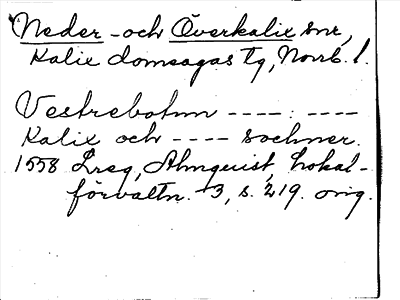 Neder- och Överkalix snr,
Kalix domsagas tg, Norrb. l.
Vestrebotnn ----: ----
Kalix och ---- sochner.
1558 Lreg, Almquist, Lokal-
förvaltn. 3, s. 219. orig.